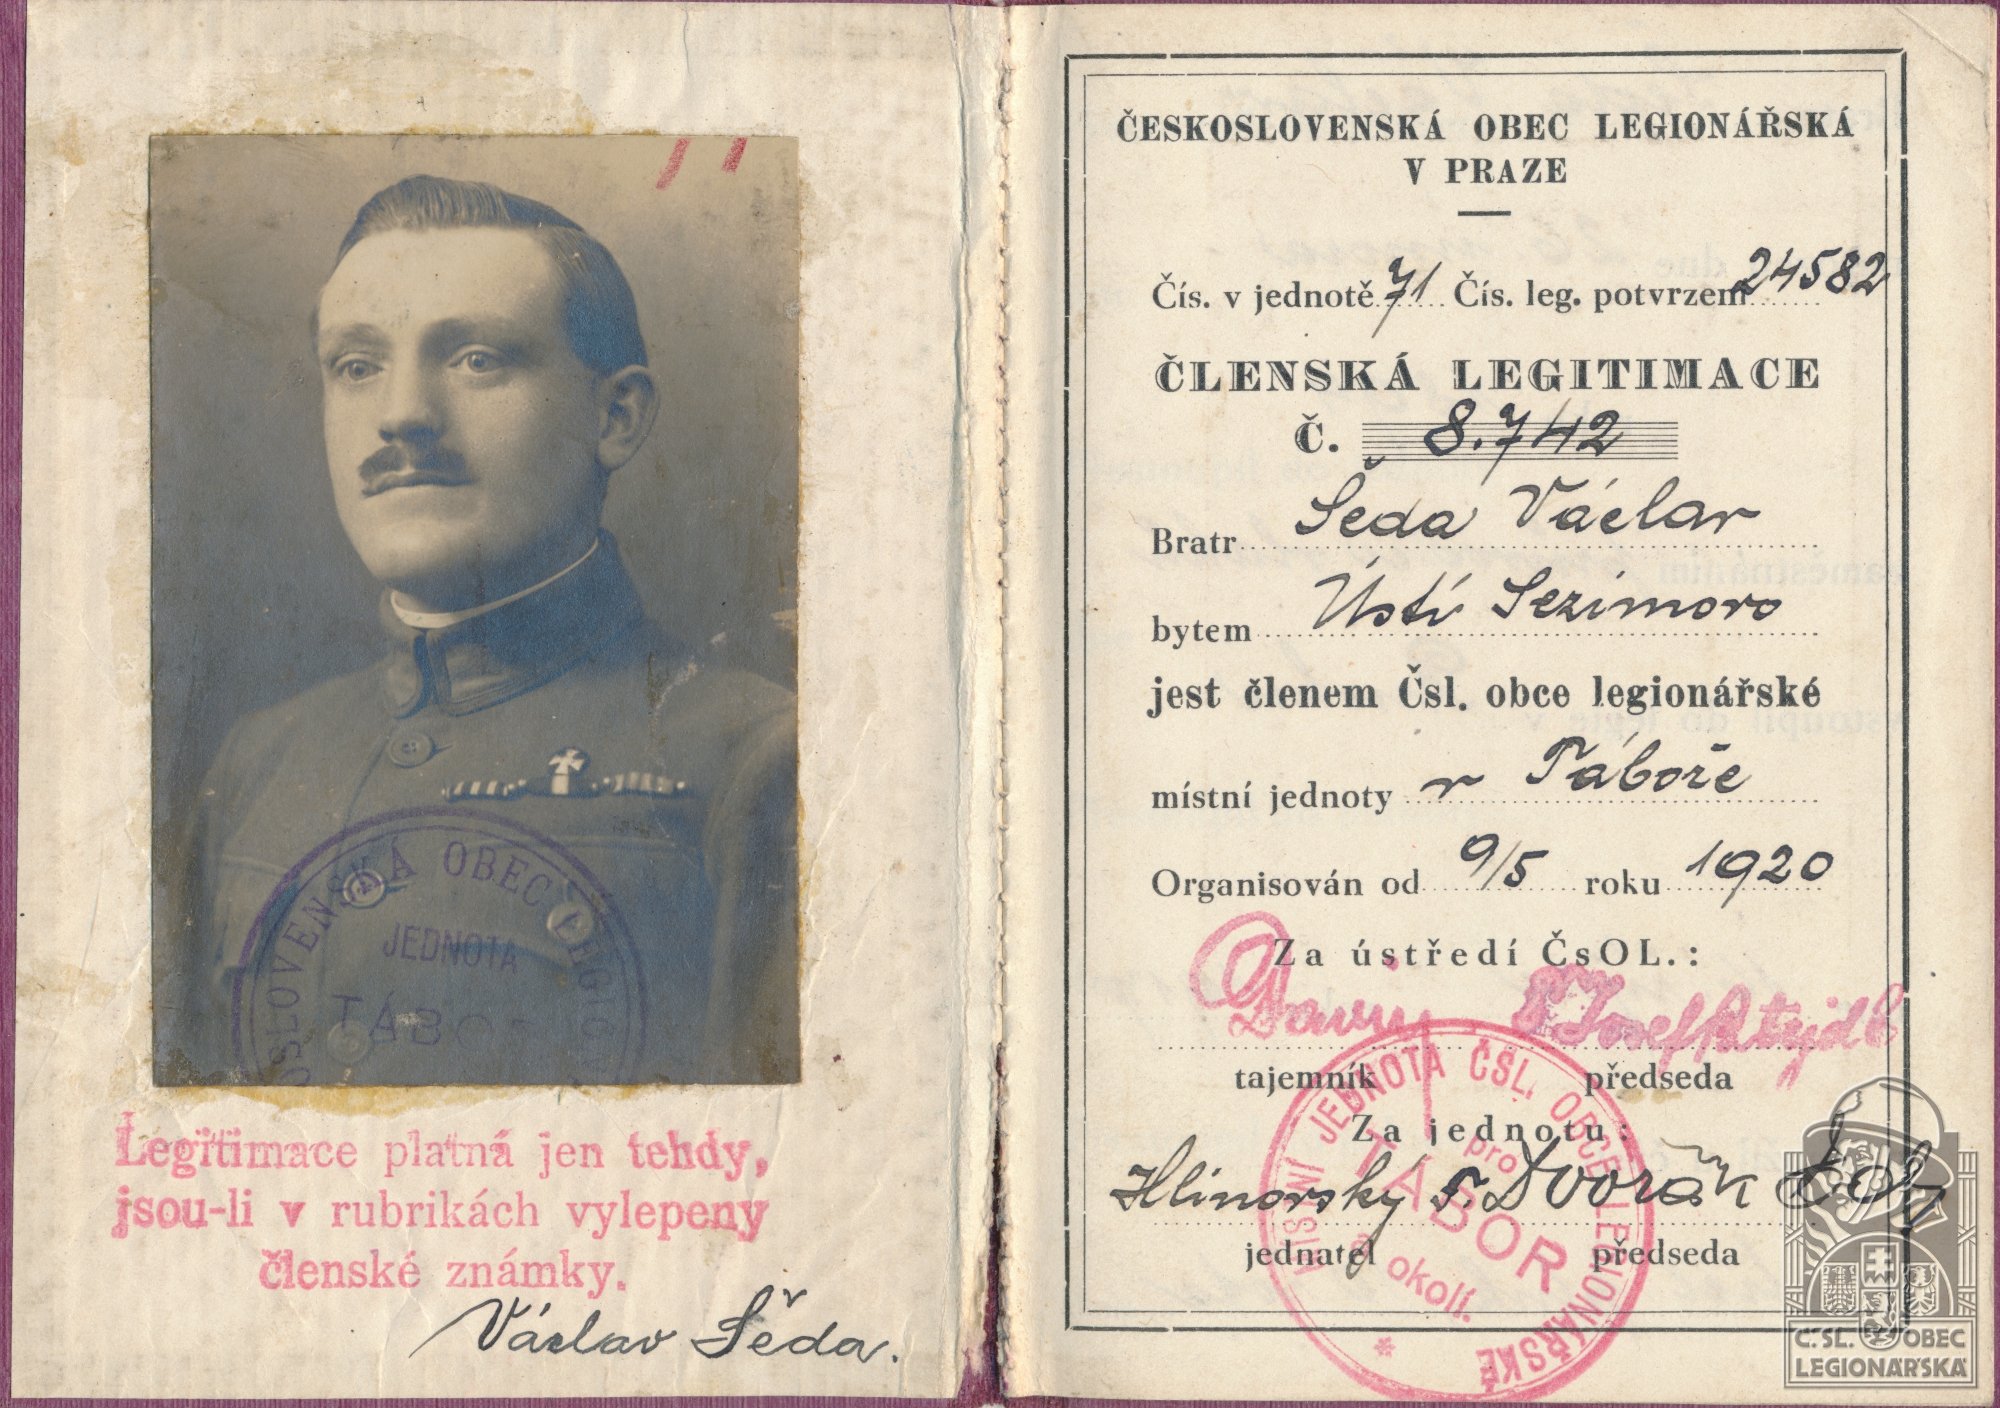 ČESKOSLOVENSKÁ OBEC LEGIONÁŘSKÁ
V PRAZE
Čís. v jednotě 71 Čís. leg. potvrzení 24582
ČLENSKÁ LEGITIMACE
Č. 8.742
Bratr Šeda Václav
bytem Ústí Sezimovo
jest členem Čsl. obce legionářské
místní jednoty v Táboře
Organisován od 9/5 roku 1920
Za ústředí ČsOL.:
Josef Patejdl
tajemník předseda
Za jednotu:
Hlinovský Dvořák
jednatel předseda
MÍSTNÍ JEDNOTA ČSL. OBCE LEGIONÁŘSKÉ
pro
TÁBOR
a okolí.
OSLOVENSKÁ OBEC LEGION
JEDNOTA
TÁBOR
Legitimace platná jen tehdy,
jsou-li v rubrikách vylepeny
členské známky.
Václav Šeda.
Č.SL. OBEC
LEGIONÁŘSKÁ